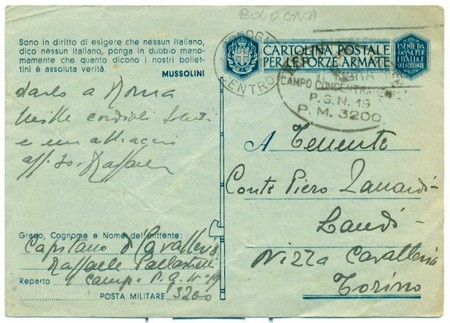 BOLOGNA
Sono in diritto di esigere che nessun italiano,
dico nessun italiano, ponga in dubbio meno-
mamente che quanto dicono i nostri bollet-
tini è assoluta verità.
MUSSOLINI
CARTOLINA POSTALE
PER LE FORZE ARMATE
CAMPO CONCENTRAMENTO
P.G.N. 19
P.M. 3200
CENTRO
a Roma
mille cordiali
e un abbraccio
A Tenente
Conte Piero Zanardi-
Landi
Nizza Cavalleria
Torino
Grado, Cognome e Nome del mittente:
Capitano di Cavalleria
Raffaele
Reparto Campo P.G. N° 19
POSTA MILITARE 3200